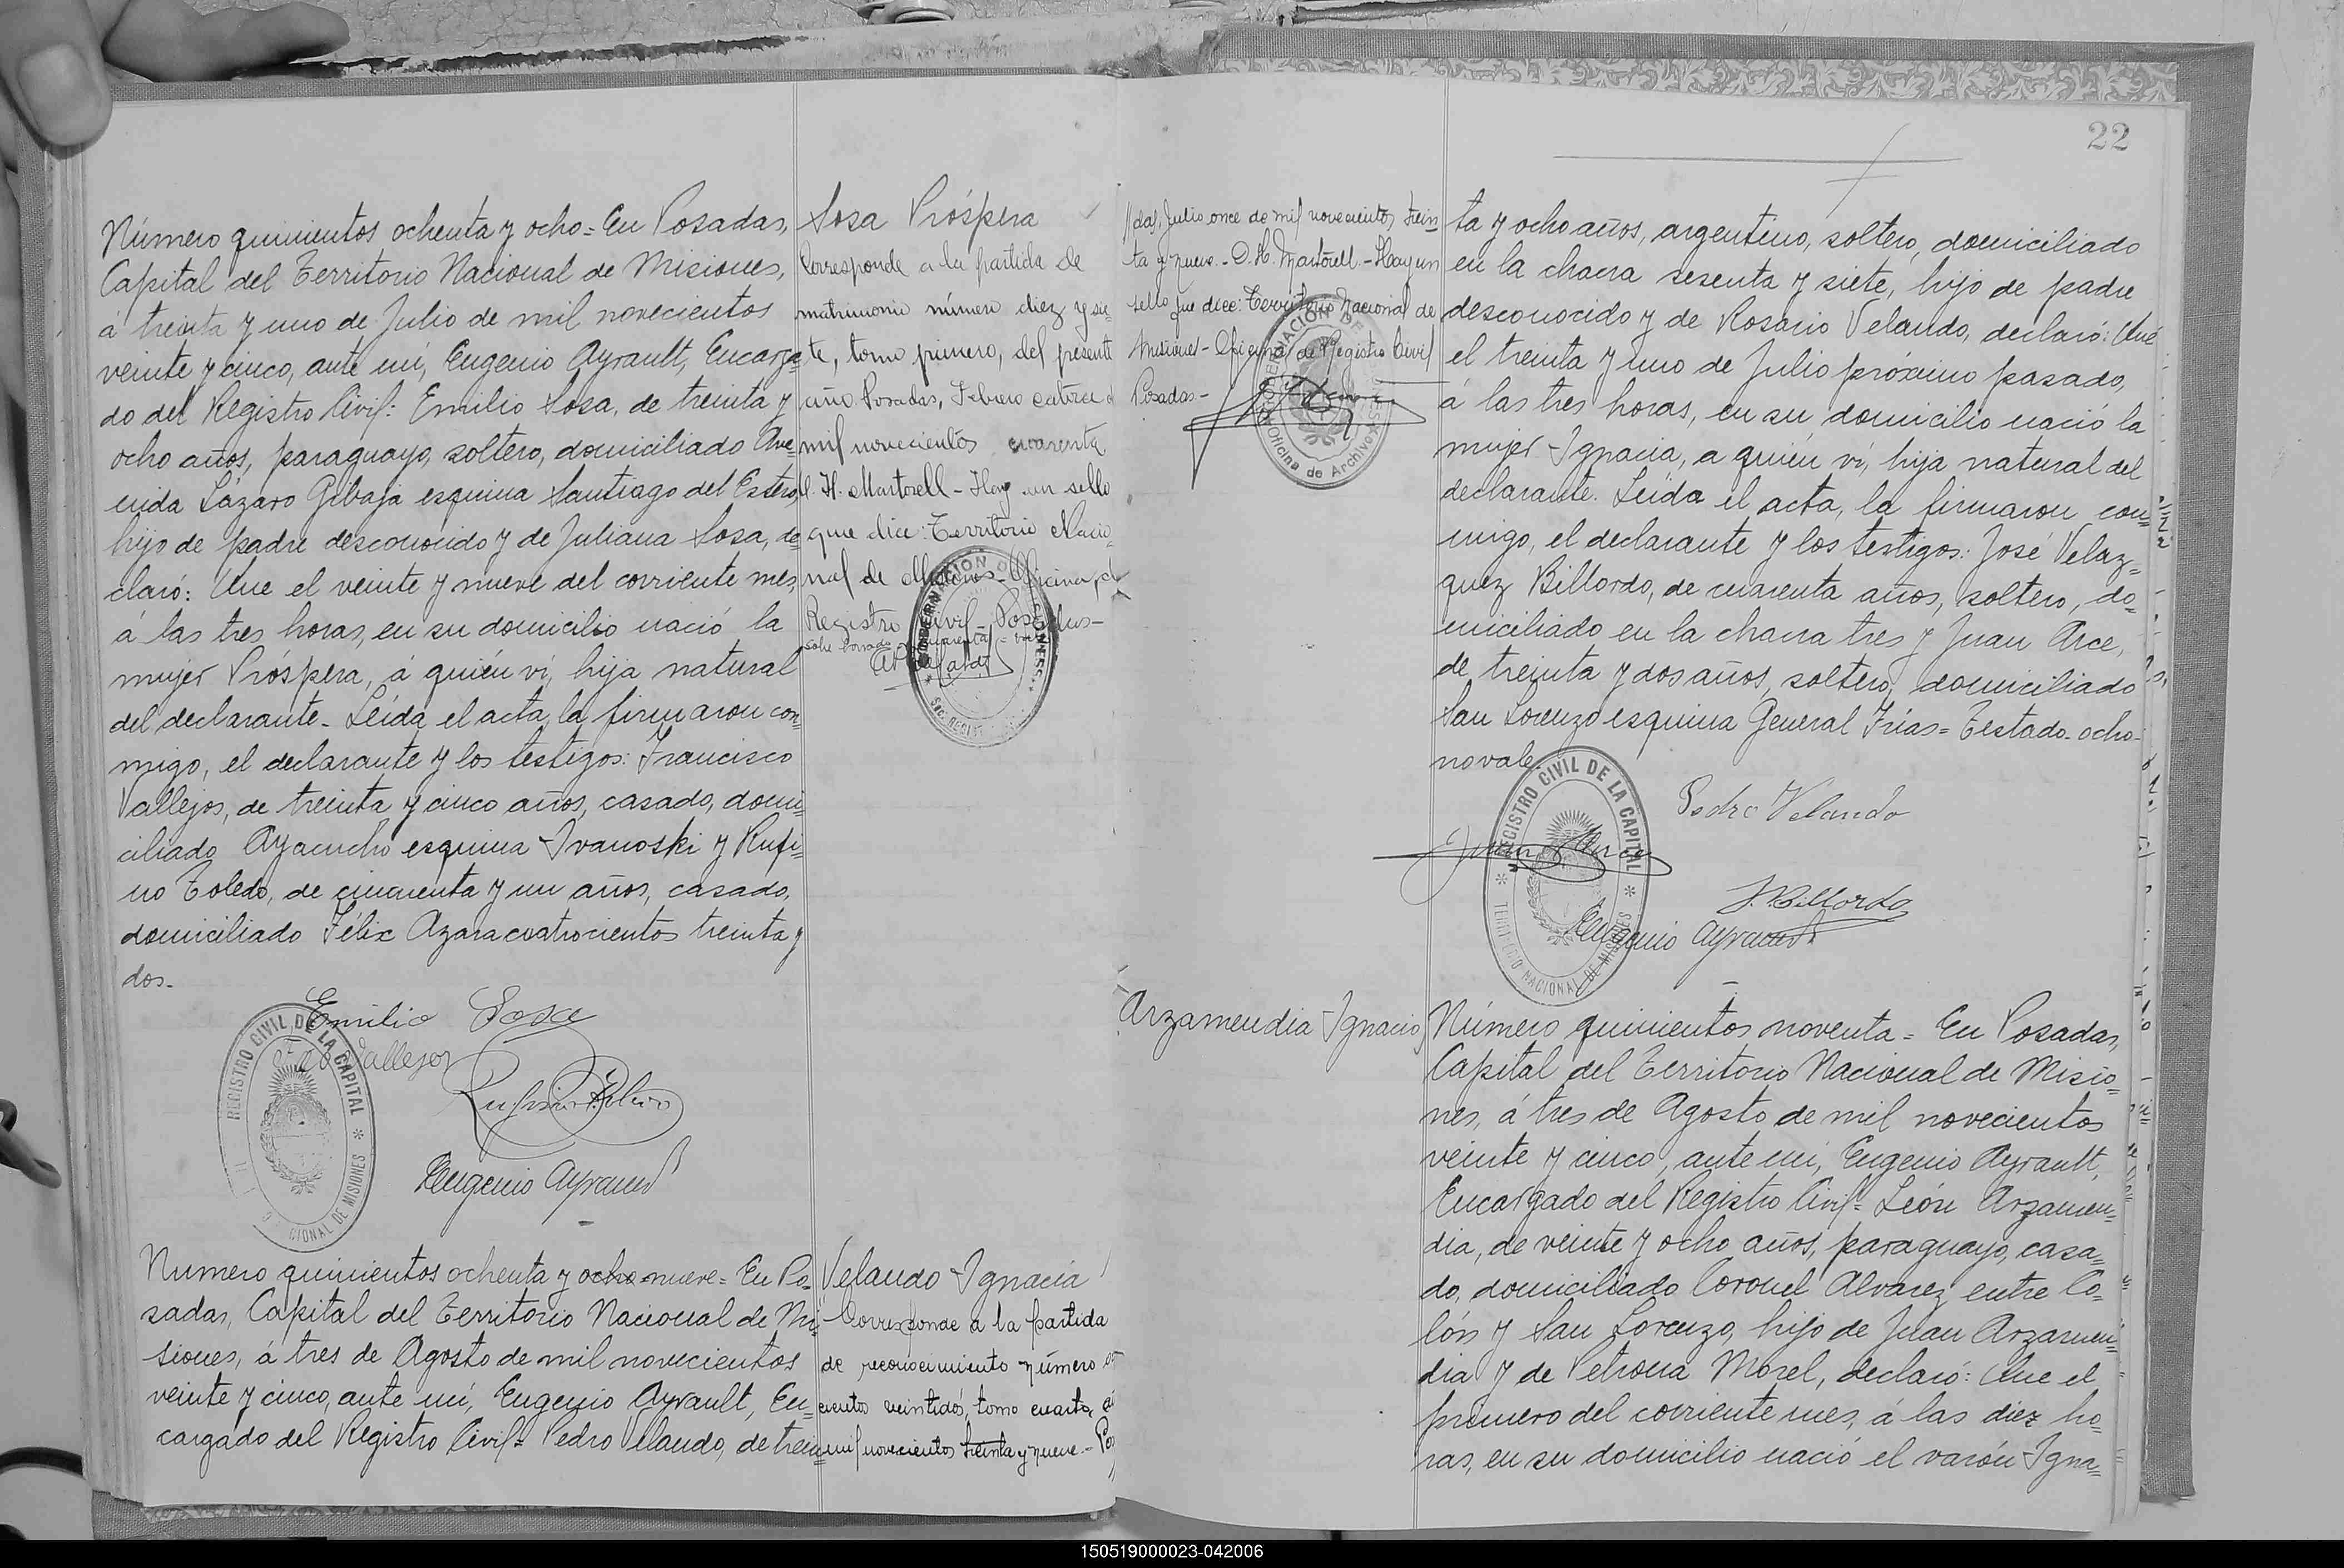 Número quinientos ochenta y ocho= En Posadas,
Capital del Territorio Nacional de Misiones,
á treinta y uno de Julio de mil novecientos
veinte y cinco, ante mí, Eugenio Ayrault, Encarga=
do del Registro Civil: Emilio Sosa, de treinta y
ocho años, paraguayo, soltero, domiciliado Ave=
nida Lázaro Gibaja esquina Santiago del Estero,
hijo de padre desconocido y de Juliana Sosa, de=
claró: Que el veinte y nueve del corriente mes,
á las tres horas, en su domicilio nació la
mujer Próspera, á quién ví, hija natural
del declarante. Leída el acta, la firmaron con=
migo, el declarante y los testigos: Francisco
Vallejos, de treinta y cinco años, casado, domi=
ciliado Ayacucho esquina Ivanoski y Rufi=
no Toledo, de cincuenta y un años, casado,
domiciliado Félix Azara cuatrocientos treinta y
dos.
Emilio Sosa
Vallejos
Eugenio Ayrault
REGISTRO CIVIL DE LA CAPITAL
NACIONAL DE MISIONES
Sosa Próspera
Corresponde a la partida de
matrimonio número diez y sie
te, tomo primero, del presente
año. Posadas, Febrero catorce
mil novecientos cuarenta
H. Martorell - Hay un sello
que dice: Territorio Nacio
nal de Misiones - Oficina
Registro Civil - Posadas -
GOBERNACION
MISIONES
Numero quinientos ochenta y ocho nueve= En Po=
sadas, Capital del Territorio Nacional de Mi=
siones, á tres de Agosto de mil novecientos
veinte y cinco, ante mí, Eugenio Ayrault, En=
cargado del Registro Civil= Pedro Velaudo, de trein=
Velaudo Ignacia
Corresponde a la partida
de reconocimiento número
cientos veintidós, tomo cuarto,
mil novecientos treinta y nueve.-
22
//das, Julio once de mil novecientos trein
ta y nueve.- O. H. Martorell.- Hay un
sello que dice: Territorio Nacional de
Misiones- Oficina de Registro Civil
Posadas-
GOBERNACION DE
Oficina de Archivo
ta y ocho años, argentino, soltero, domiciliado
en la chacra sesenta y siete, hijo de padre
desconocido y de Rosario Velaudo, declaró: Que
el treinta y uno de Julio próximo pasado,
á las tres horas, en su domicilio nació la
mujer Ignacia, a quién ví, hija natural del
declarante. Leída el acta, la firmaron con=
migo, el declarante y los testigos: José Velaz=
quez Billordo, de cuarenta años, soltero, do=
miciliado en la chacra tres y Juan Arce,
de treinta y dos años, soltero, domiciliado
San Lorenzo esquina General Frías= Testado- ocho-
no vale.
Pedro Velaudo
Juan Arce
J. V. Billordo
Eugenio Ayrault
REGISTRO CIVIL DE LA CAPITAL
TERRITORIO NACIONAL DE MISIONES
Arzamendia Ignacio
Número quinientos noventa= En Posadas,
Capital del Territorio Nacional de Misio=
nes, á tres de Agosto de mil novecientos
veinte y cinco, ante mí, Eugenio Ayrault,
Encargado del Registro Civil= León Arzamen=
dia, de veinte y ocho años, paraguayo, casa=
do, domiciliado Coronel Alvarez entre Co=
lón y San Lorenzo, hijo de Juan Arzamen=
dia y de Petrona Morel, declaró: Que el
primero del corriente mes, á las diez ho=
ras, en su domicilio nació el varón Igna=
150519000023-042006